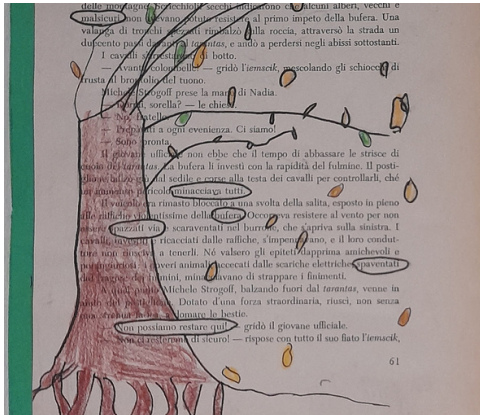 delle montagne. Parecchi ceppi secchi indicavano alcuni alberi, vecchi e
malsicuri, non avevano potuto resistere al primo impeto della bufera. Una
valanga di tronchi spezzati rimbalzò sulla roccia, attraversò la strada un
duecento passi davanti al tarantas, e andò a perdersi negli abissi sottostanti.
I cavalli s'arrestarono di botto.
— Avanti, colombelle! — gridò l'iemscik, mescolando gli schiocchi di
frusta al brontolio del tuono.
Michele Strogoff prese la mano di Nadia.
sorella? — le chiese.
— No, fratello.
— Preparati a ogni evenienza. Ci siamo!
— Sono pronta.
Il giovane ufficiale non ebbe che il tempo di abbassare le strisce di
cuoio del tarantas. La bufera li investì con la rapidità del fulmine. Il posti-
dal sedile e corse alla testa dei cavalli per controllarli, ché
un immenso pericolo minacciava tutti.
Il veicolo era rimasto bloccato a una svolta della salita, esposto in pieno
alle raffiche violentissime della bufera. Occorreva resistere al vento per non
essere spazzati via e scaraventati nel burrone, che s'apriva sulla sinistra. I
cavalli, ricacciati dalle raffiche, s'impennavano, e il loro condut-
tore non riusciva a tenerli. Né valsero gli epiteti dapprima amichevoli e
poveri animali accecati dalle scariche elettriche, spaventati
minacciavano di strappare i finimenti.
A quel punto Michele Strogoff, balzando fuori dal tarantas, venne in
aiuto del postiglione. Dotato d'una forza straordinaria, riuscì, non senza
domare le bestie.
— Non possiamo restare qui! — gridò il giovane ufficiale.
— Non ci resteremo di sicuro! — rispose con tutto il suo fiato l'iemscik,
61